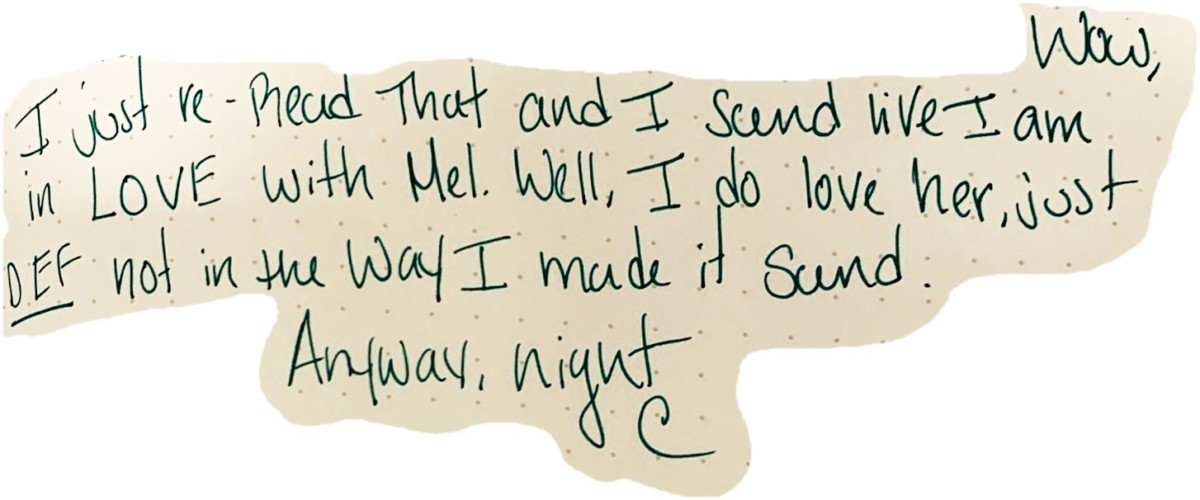 Wow,
I just re-Read That and I sound like I am
in LOVE with Mel. Well, I do love her, just
DEF not in the way I made it sound.
Anyway, night
C